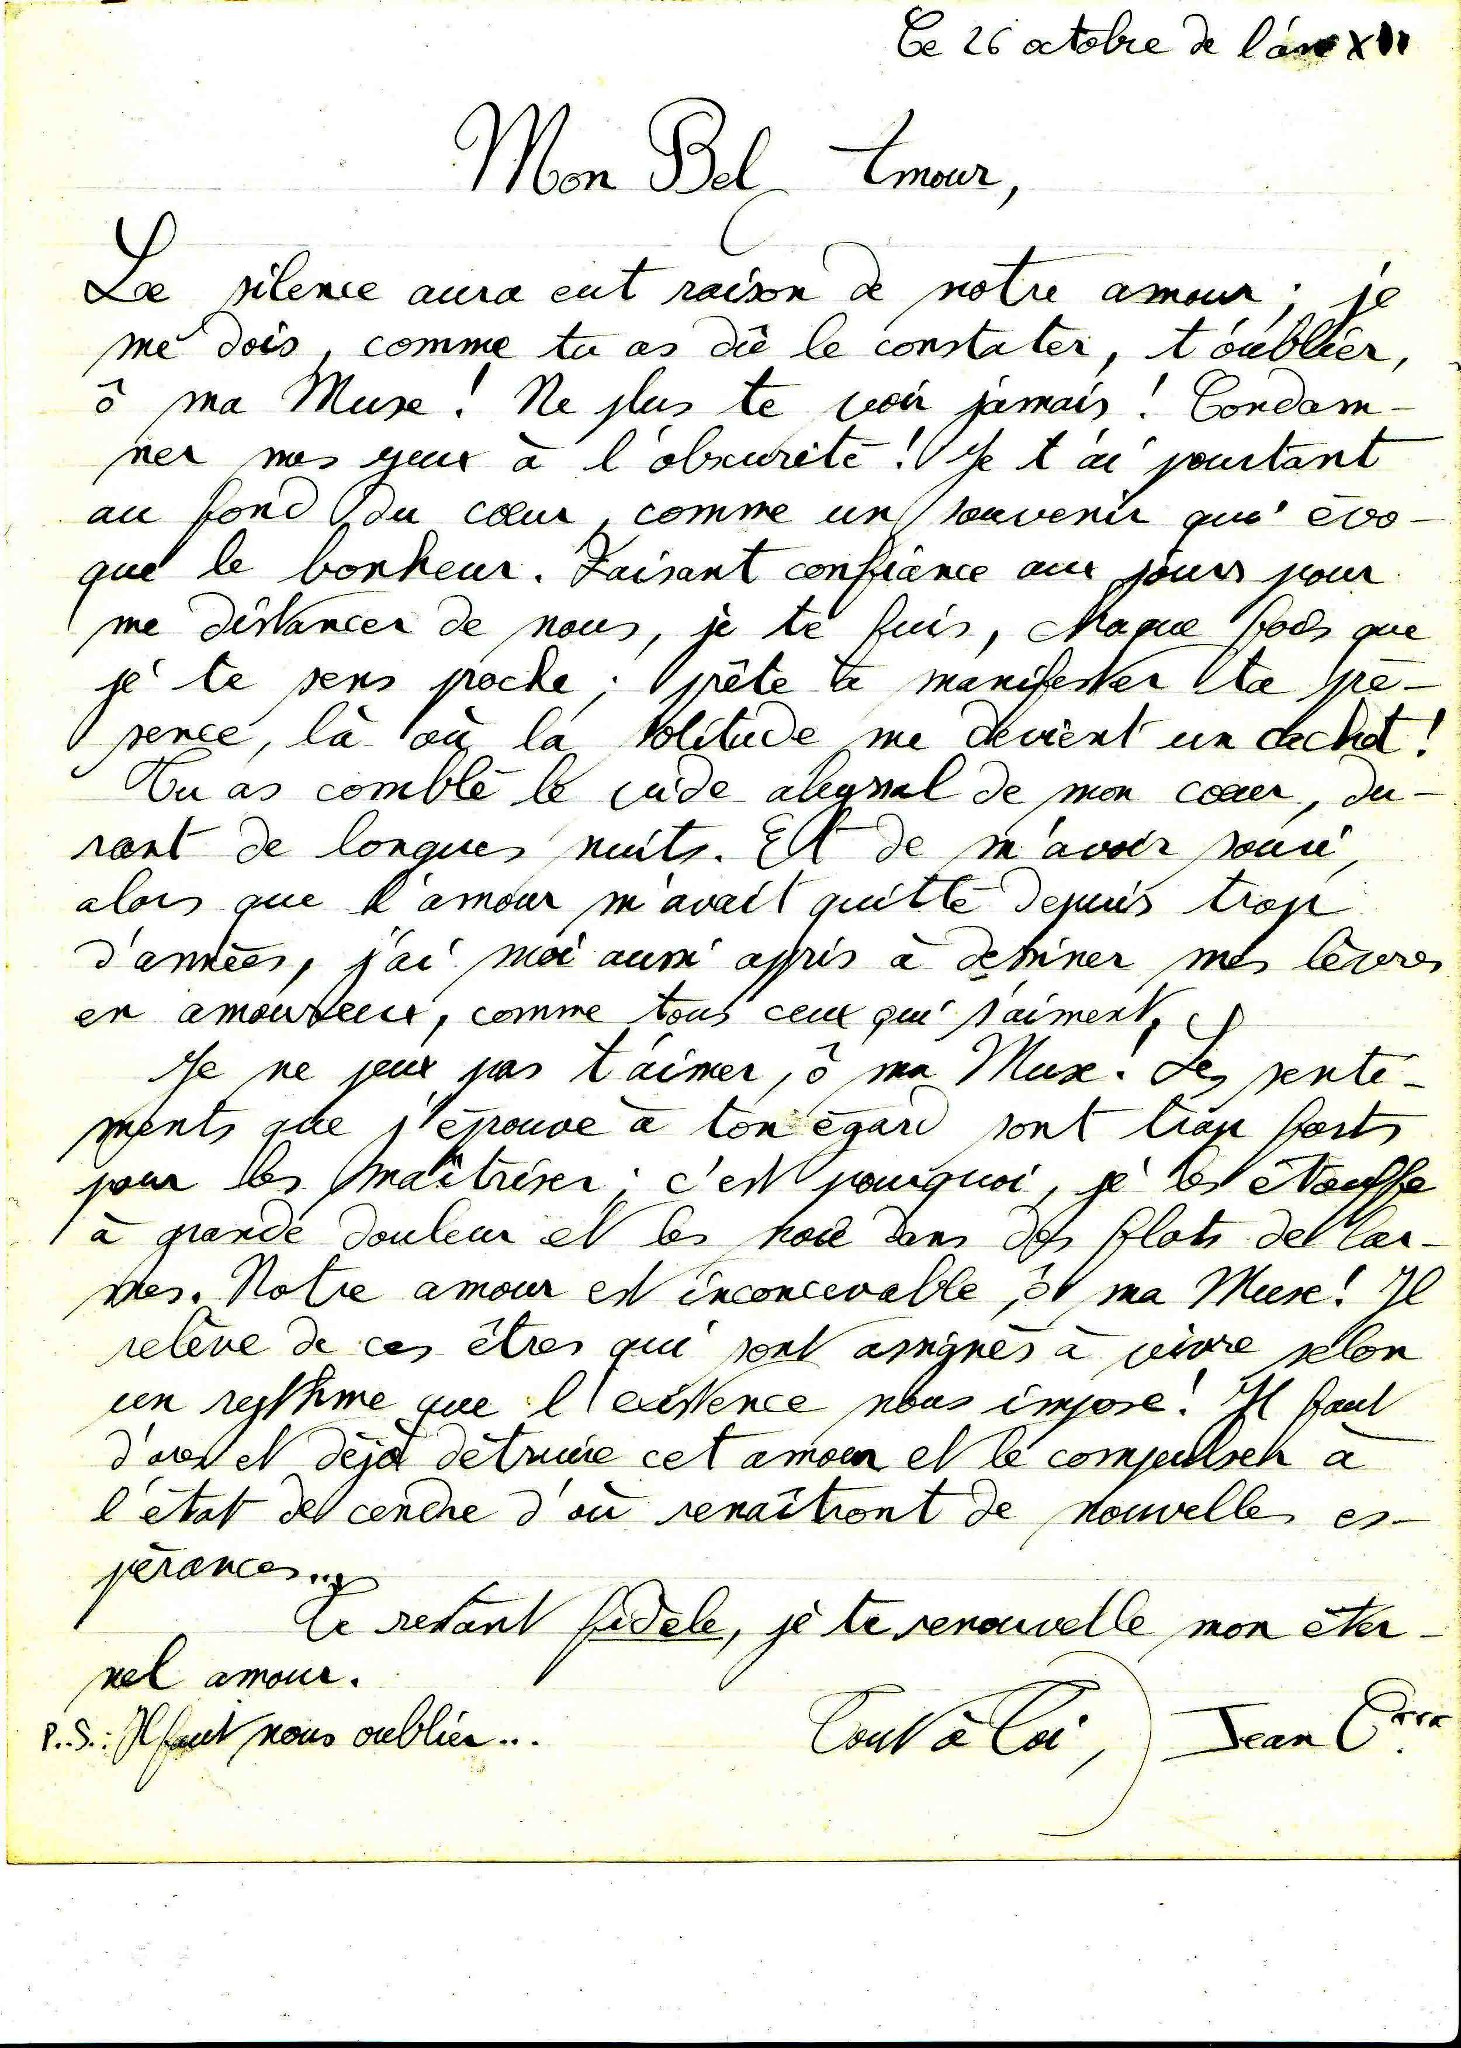 Ce 26 octobre de l'an XII
Mon Bel Amour,
Le silence aura eut raison de notre amour ; je
me dois, comme tu as dû le constater, t'oublier,
ô ma Muse ! Ne plus te voir jamais ! Condam-
ner mes yeux à l'obscurité ! Je t'ai pourtant
au fond du cœur, comme un souvenir qui évo-
que le bonheur. Faisant confiance aux jours pour
me distancer de nous, je te fuis, chaque fois que
je te sens proche ; prête à manifester ta pré-
sence, là où la solitude me devient un cachot !
Tu as comblé le vide abyssal de mon cœur, du-
rant de longues nuits. Et de m'avoir souri,
alors que l'amour m'avait quitté depuis trop
d'années, j'ai moi aussi appris à dessiner mes lèvres
en amoureux, comme tous ceux qui s'aiment.
Je ne peux pas t'aimer, ô ma Muse ! Les senti-
ments que j'éprouve à ton égard sont trop forts
pour les maîtriser ; c'est pourquoi, je les étouffe
à grande douleur et les noie dans des flots de lar-
mes. Notre amour est inconcevable, ô ma Muse ! Il
relève de ces êtres qui sont assignés à vivre selon
un rythme que l'existence nous impose ! Il faut
d'ores et déjà détruire cet amour et le compulser à
l'état de cendre d'où renaîtront de nouvelles es-
pérances...
Te restant fidèle, je te renouvelle mon éter-
nel amour.
P.S.: Il faut nous oublier... Tout à Toi, Jean C***.